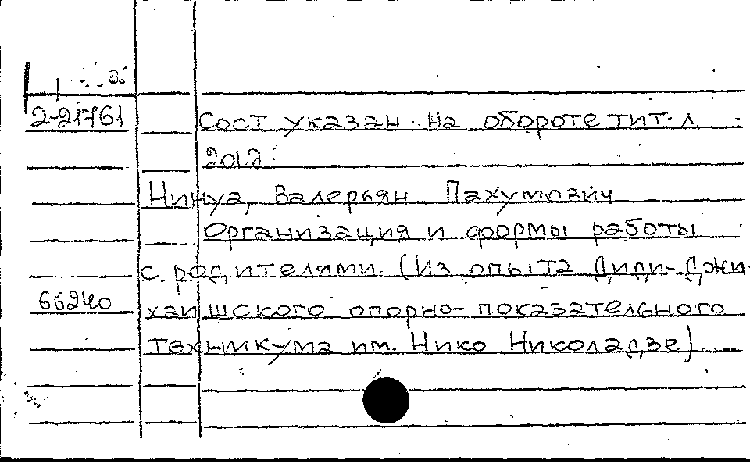 2-21761 Сост указан на обороте тит. л
2012
Нинуа, Валерьян Пахумович
Организация и формы работы
с родителями. (Из опыта Диди-Джи-
66240 хаишского опорно-показательного
техникума им. Нико Николадзе)